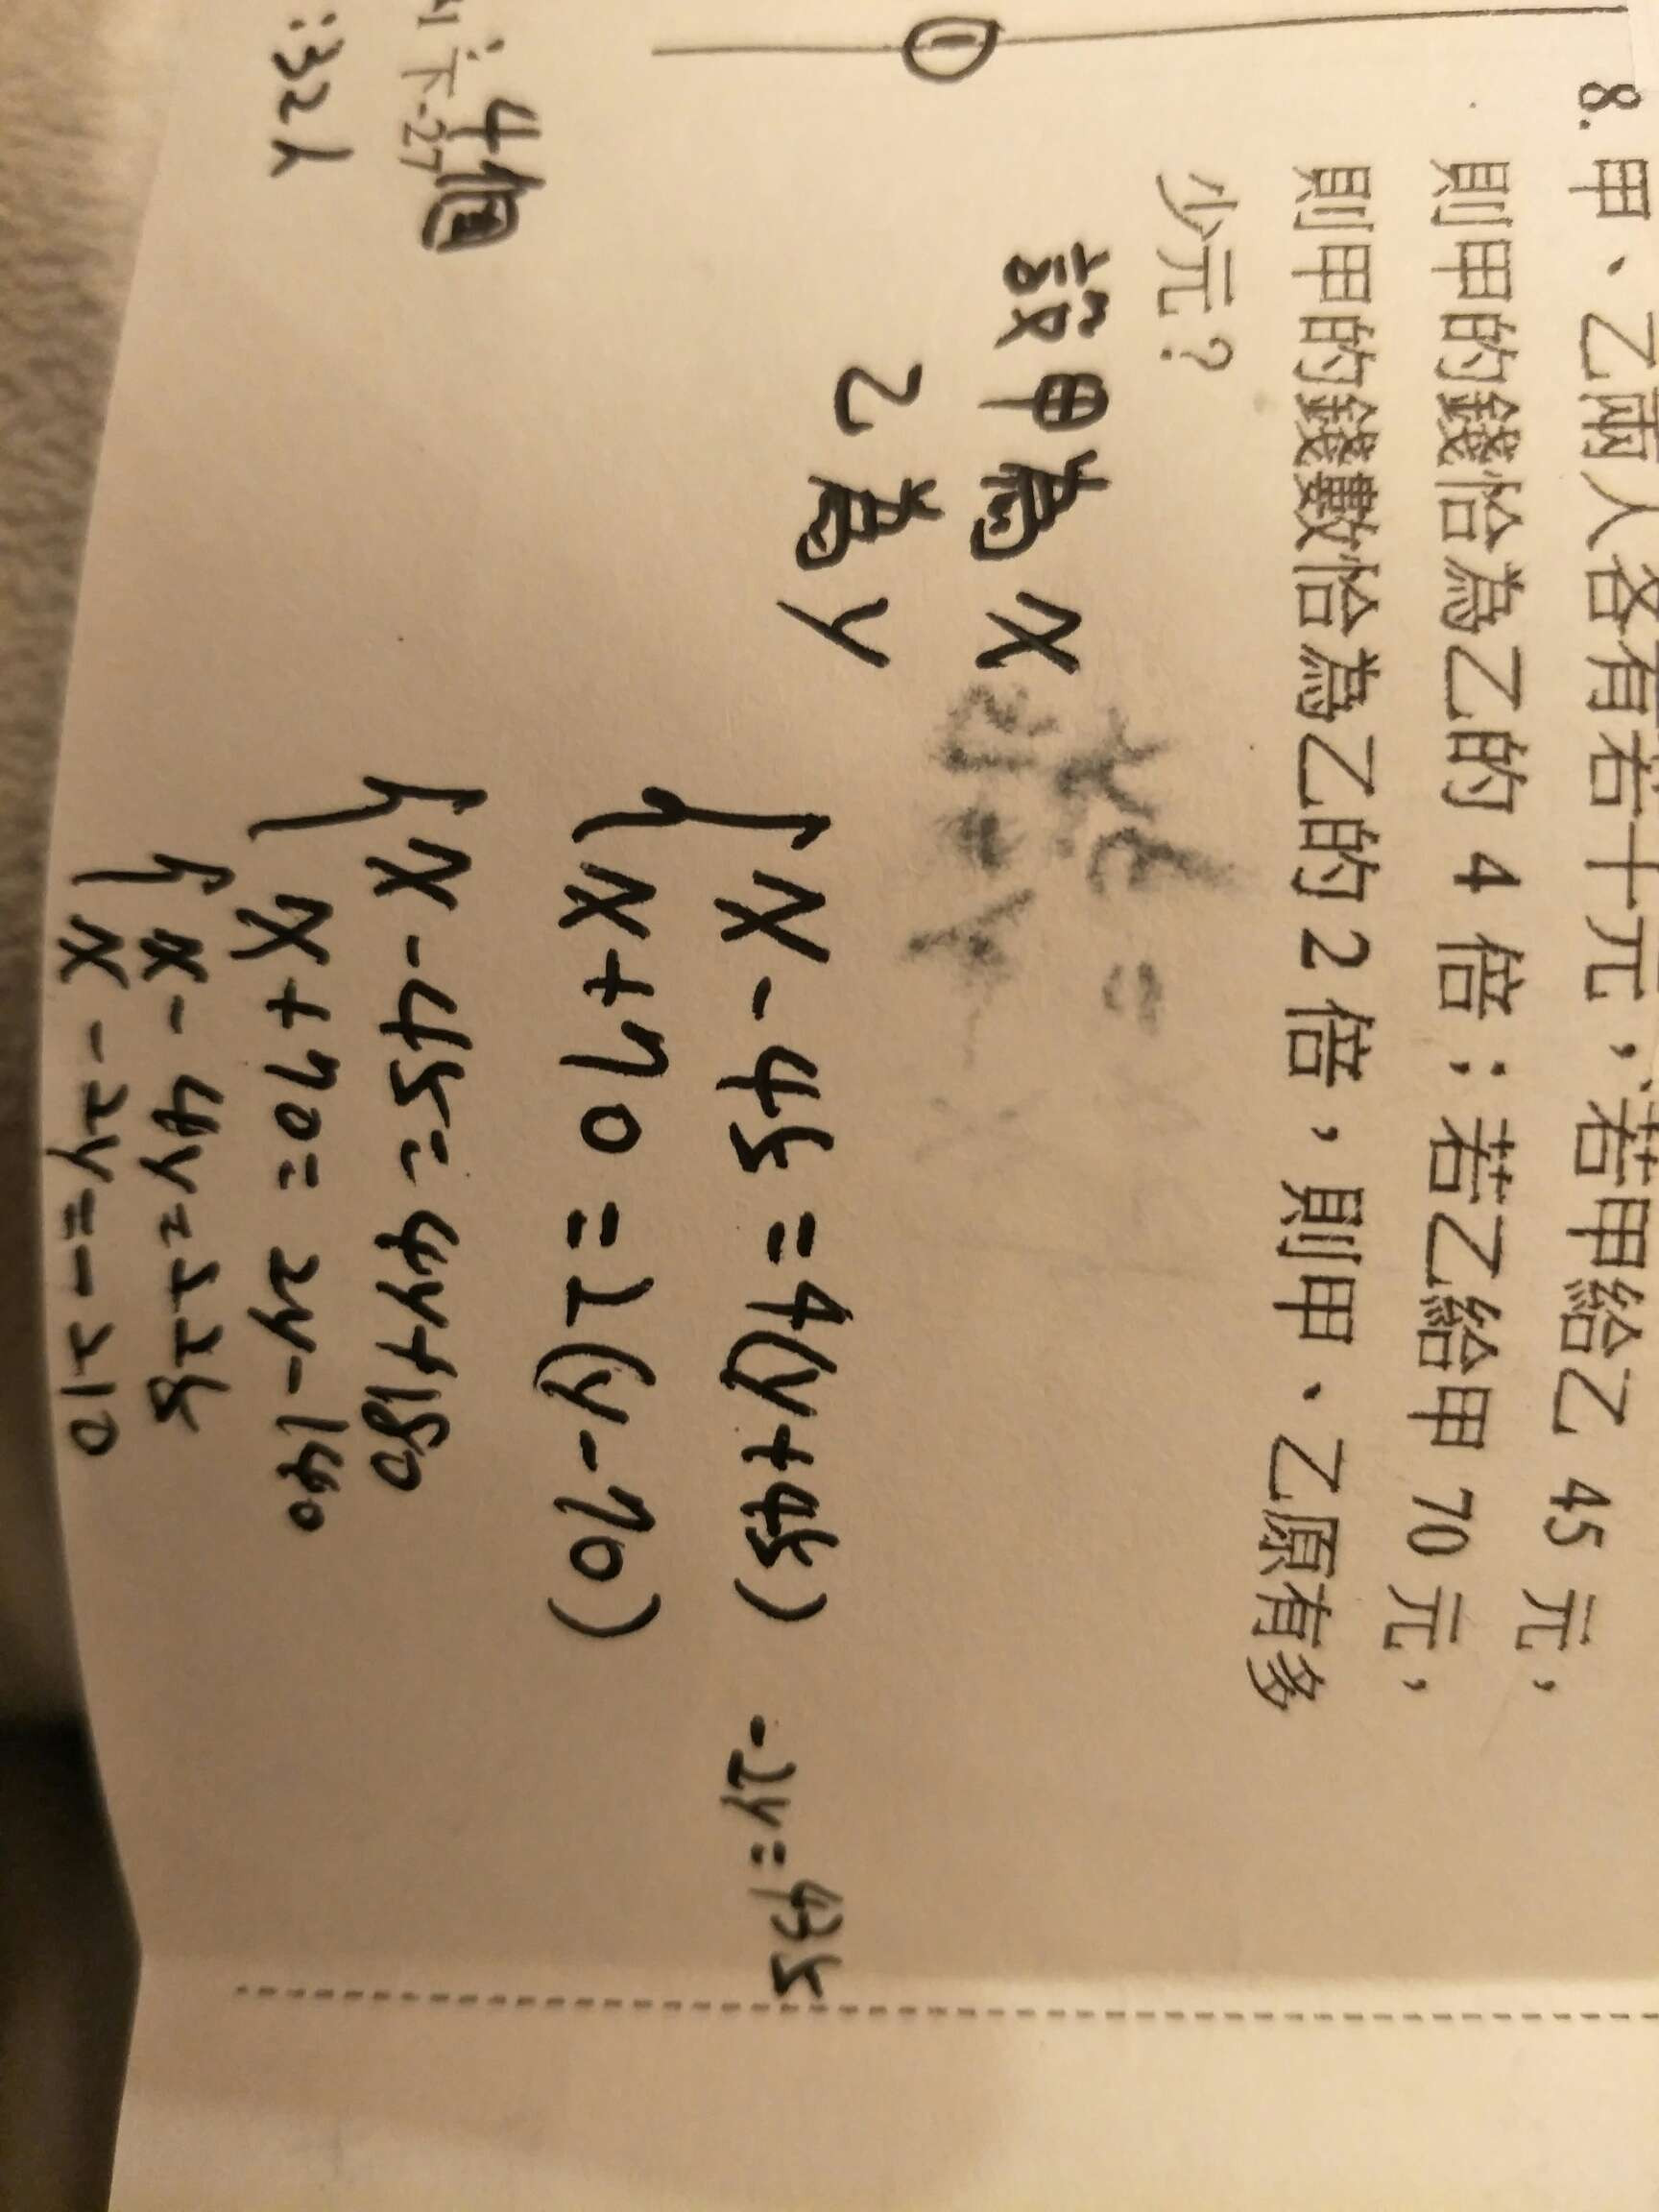 8. 甲、乙兩人各有若干元，若甲給乙 45 元，
則甲的錢恰為乙的 4 倍；若乙給甲 70 元，
則甲的錢數恰為乙的 2 倍，則甲、乙原有多
少元？
①
設甲為 X
乙為 y
X - 45 = 4(y+45)
X+70 = 2(y-70)
-2y=435
X-45=4y+180
X+70=2y-140
X-4y=225
X-2y=-210
4個
下-27
:32人